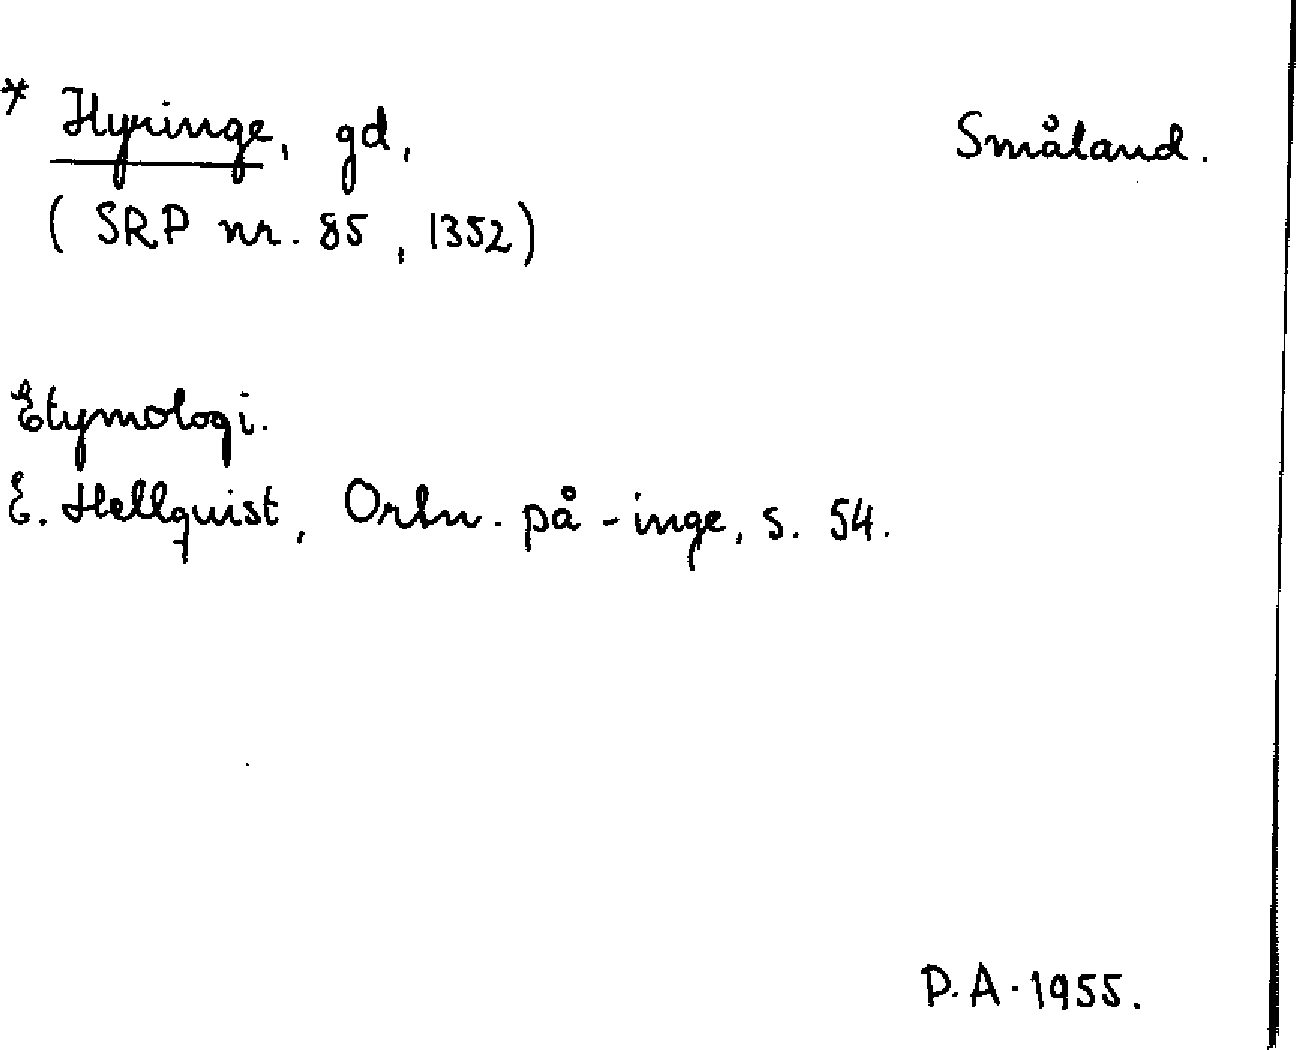 * Hyringe, gd, Småland.
(SRP nr. 85, 1352)
Etymologi.
E. Hellquist, Ortn. på -inge, s. 54.
P.A. 1955.